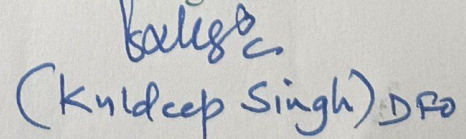 (Kuldeep Singh) DFO